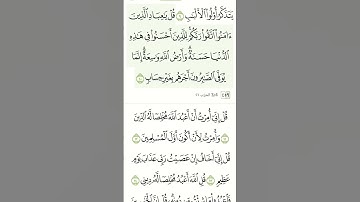 يَتَذَكَّرُ أُو۟لُوا۟ ٱلْأَلْبَٰبِ ۝ قُلْ يَٰعِبَادِ ٱلَّذِينَ
ءَامَنُوا۟ ٱتَّقُوا۟ رَبَّكُمْ لِلَّذِينَ أَحْسَنُوا۟ فِى هَٰذِهِ
ٱلدُّنْيَا حَسَنَةٌ وَأَرْضُ ٱللَّهِ وَٰسِعَةٌ إِنَّمَا
يُوَفَّى ٱلصَّٰبِرُونَ أَجْرَهُم بِغَيْرِ حِسَابٍ
قُلْ إِنِّىٓ أُمِرْتُ أَنْ أَعْبُدَ ٱللَّهَ مُخْلِصًا لَّهُ ٱلدِّينَ
وَأُمِرْتُ لِأَنْ أَكُونَ أَوَّلَ ٱلْمُسْلِمِينَ
قُلْ إِنِّىٓ أَخَافُ إِنْ عَصَيْتُ رَبِّى عَذَابَ يَوْمٍ
عَظِيمٍ ۝ قُلِ ٱللَّهَ أَعْبُدُ مُخْلِصًا لَّهُۥ دِينِى